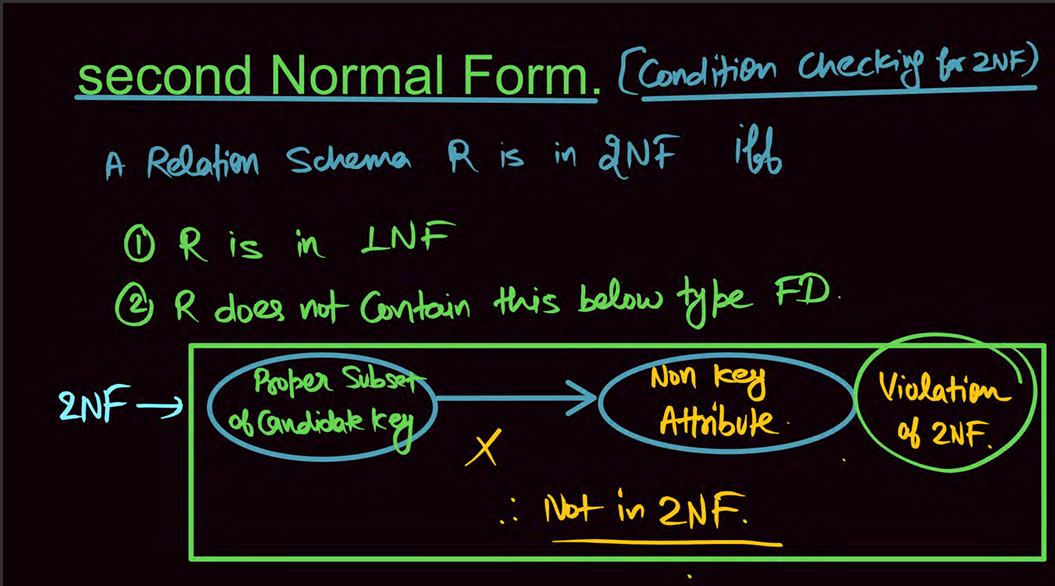 second Normal Form. [Condition Checking for 2NF)
A Relation Schema R is in 2NF iff
① R is in 1NF
② R does not Contain this below type FD.
2NF → Proper Subset of Candidate Key → Non Key Attribute. Violation of 2NF.
X
∴ Not in 2NF.